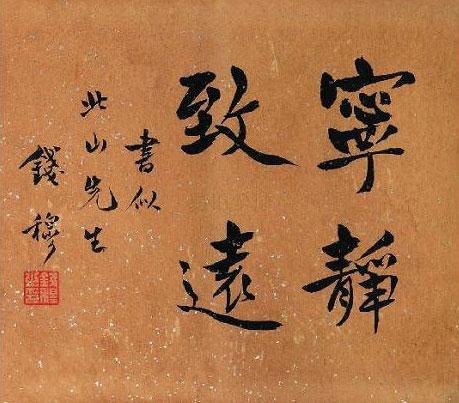 寧靜
致遠
書似
此山先生
錢穆